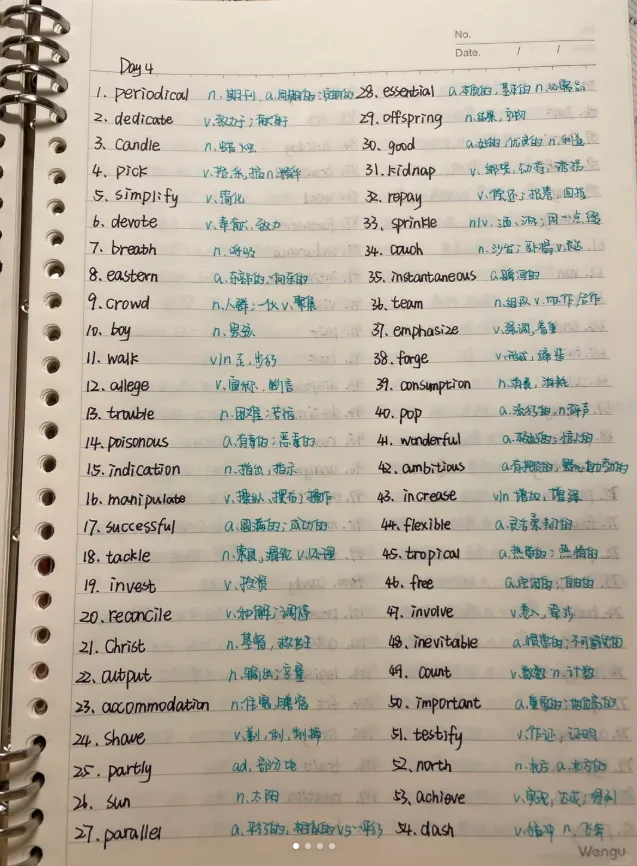 No.
Date. / /
Day 4
1. periodical n. 期刊 a. 周期的;定期的
2. dedicate v. 致力于;献身于
3. candle n. 蜡烛
4. pick v. 挖
5. simplify v. 简化
6. devote v. 奉献、致力
7. breath n. 呼吸
8. eastern a. 东部的、向东的
9. crowd n. 人群;一伙 v. 聚集
10. boy n. 男孩
11. walk v/n 走, 步行
12. allege v. 宣称、断言
13. trouble n. 困难;苦恼
14. poisonous a. 有毒的;恶毒的
15. indication n. 指出, 指示
16. manipulate v. 操纵、摆布;操作
17. successful a. 圆满的;成功的
18. tackle n. 索具, 滑轮 v. 处理
19. invest v. 投资
20. reconcile v. 和解;调停
21. Christ n. 基督, 救世主
22. output n. 输出;产量
23. accommodation n. 住宿
24. shave v. 剃, 刮
25. partly ad. 部分地
26. sun n. 太阳
27. parallel a. 平行的, 相似的 v.
28. essential a. 本质的, 基本的 n. 必需品
29. offspring n.
30. good a. 好的;优良的 n. 利益
31. kidnap v. 绑架,
32. repay v. 偿还;报答、回报
33. sprinkle n/v. 洒、淋;
34. couch n. 沙发;卧榻 v.
35. instantaneous a. 瞬间的
36. team n. 组队 v. 协作, 合作
37. emphasize v. 强调, 着重
38. forge v. 形成, 缔造
39. consumption n. 消费, 消耗
40. pop a. 流行的, n. 砰声
41. wonderful a. 惊人的
42. ambitious a. 有抱负的,
43. increase v/n 增加, 增强
44. flexible a. 灵活柔韧的
45. tropical a. 热带的;
46. free a. 空闲的;自由的
47. involve v. 卷入, 牵涉
48. inevitable a. 惯常的;不可避免的
49. count v. 数数 n. 计数
50. important a. 重要的;
51. testify v. 作证, 证明
52. north n. 北方 a. 北方的
53. achieve v. 实现, 达成;得到
54. dash v. 猛冲 n.
Wengu